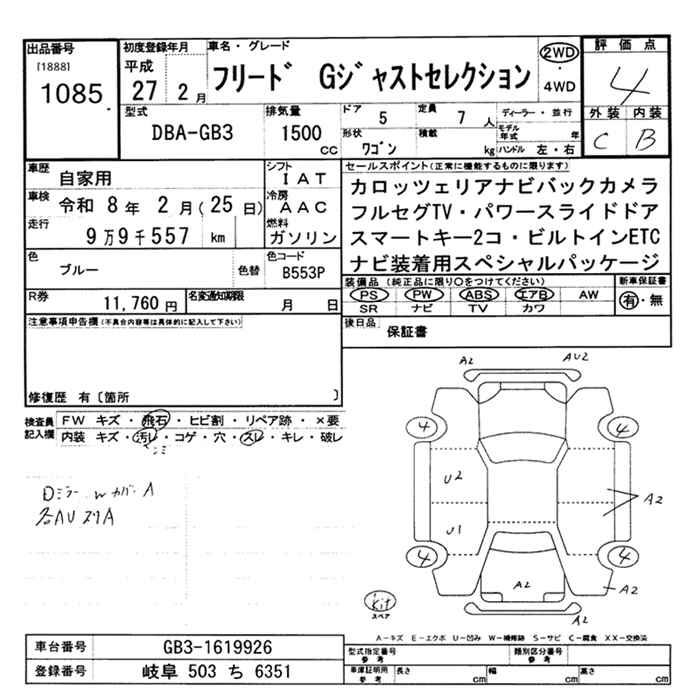 出品番号
[1888]
1085
初度登録年月
平成
27 2 月
車名・グレード
フリード Gジャストセレクション
2WD
・
4WD
評価点
4
外装 内装
C B
型式
DBA-GB3
排気量
1500
cc
ドア
5
定員
7 人
形状
ワゴン
積載
kg
ディーラー・並行
モデル年式
年
ハンドル 左・右
車歴
自家用
シフト
IAT
車検
令和 8 年 2 月(25 日)
冷房
AAC
走行
9万9千557 km
燃料
ガソリン
色
ブルー
色替
色コード
B553P
R券
11,760 円
名変通知期限
月 日
セールスポイント(正常に機能するものに限ります)
カロッツェリアナビバックカメラ
フルセグTV・パワースライドドア
スマートキー2コ・ビルトインETC
ナビ装着用スペシャルパッケージ
装備品(純正品に限り○をつけてください)
PS PW ABS エアB AW
SR ナビ TV カワ
新車保証書
有・無
後日品
保証書
注意事項申告欄(不具合内容等は具体的に記入して下さい)
修復歴 有〔箇所 〕
検査員
記入欄
FW キズ・飛石・ヒビ割・リペア跡・×要
内装 キズ・汚レ・コゲ・穴・スレ・キレ・破レ
シミ
Dミラー w カバー A
各AU スリA
A2
AU2
4
4
U2
U1
A2
4
4
A2
A2
A2
Kit
スペア
A−キズ E−エクボ U−凹み W−補修跡 S−サビ C−腐食 XX−交換済
車台番号
GB3-1619926
登録番号
岐阜 503 ち 6351
型式指定番号
参考
類別区分番号
参考
車庫証明用
参考
長さ
cm
幅
cm
高さ
cm